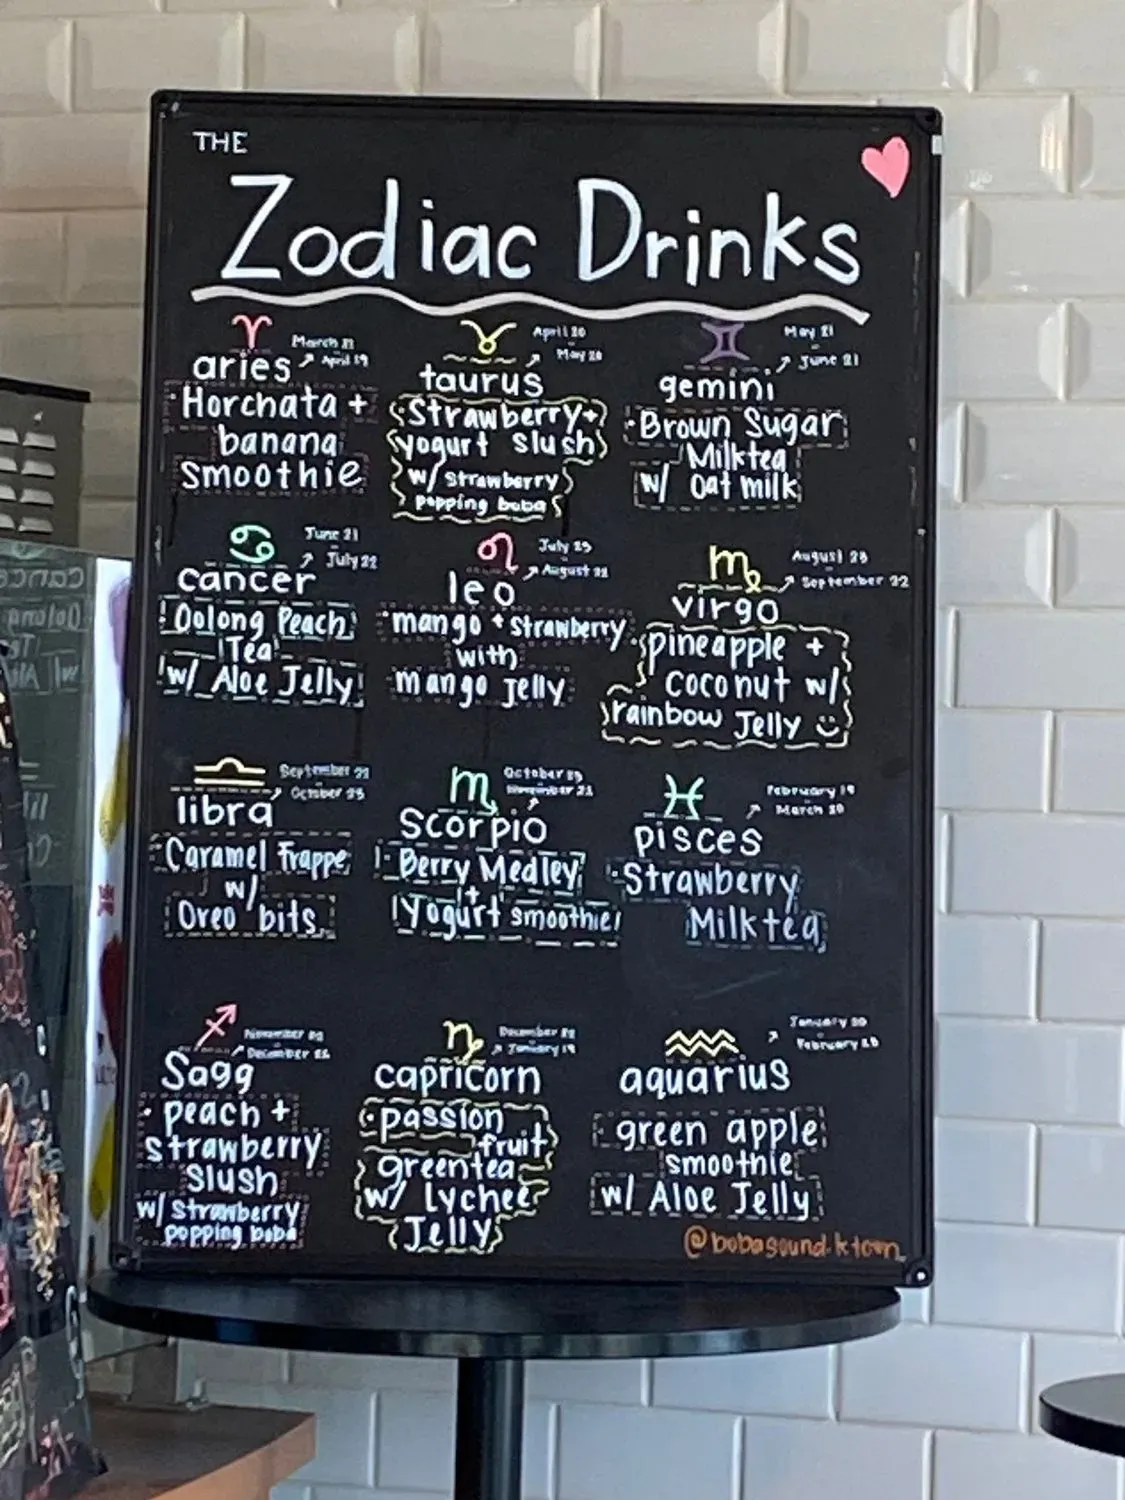 THE
Zodiac Drinks
aries
March 21
April 19
Horchata +
banana
smoothie
taurus
April 20
May 20
Strawberry +
yogurt slush
w/ strawberry
popping boba
gemini
May 21
June 21
Brown Sugar
Milktea
w/ oat milk
cancer
June 21
July 22
Oolong Peach
Tea
w/ Aloe Jelly
leo
July 23
August 22
mango + strawberry
with
mango jelly
virgo
August 23
September 22
pineapple +
coconut w/
rainbow Jelly
libra
September 23
October 23
Caramel Frappe
w/
Oreo bits
scorpio
October
November 21
Berry Medley
+
Yogurt smoothie
pisces
February 19
March 20
Strawberry
Milktea
Sagg
November
December
peach +
strawberry
slush
w/ Strawberry
popping boba
capricorn
December 22
January 19
passion
fruit
greentea
w/ Lychee
Jelly
aquarius
January 20
February 18
green apple
smoothie
w/ Aloe Jelly
@bobasound.ktown